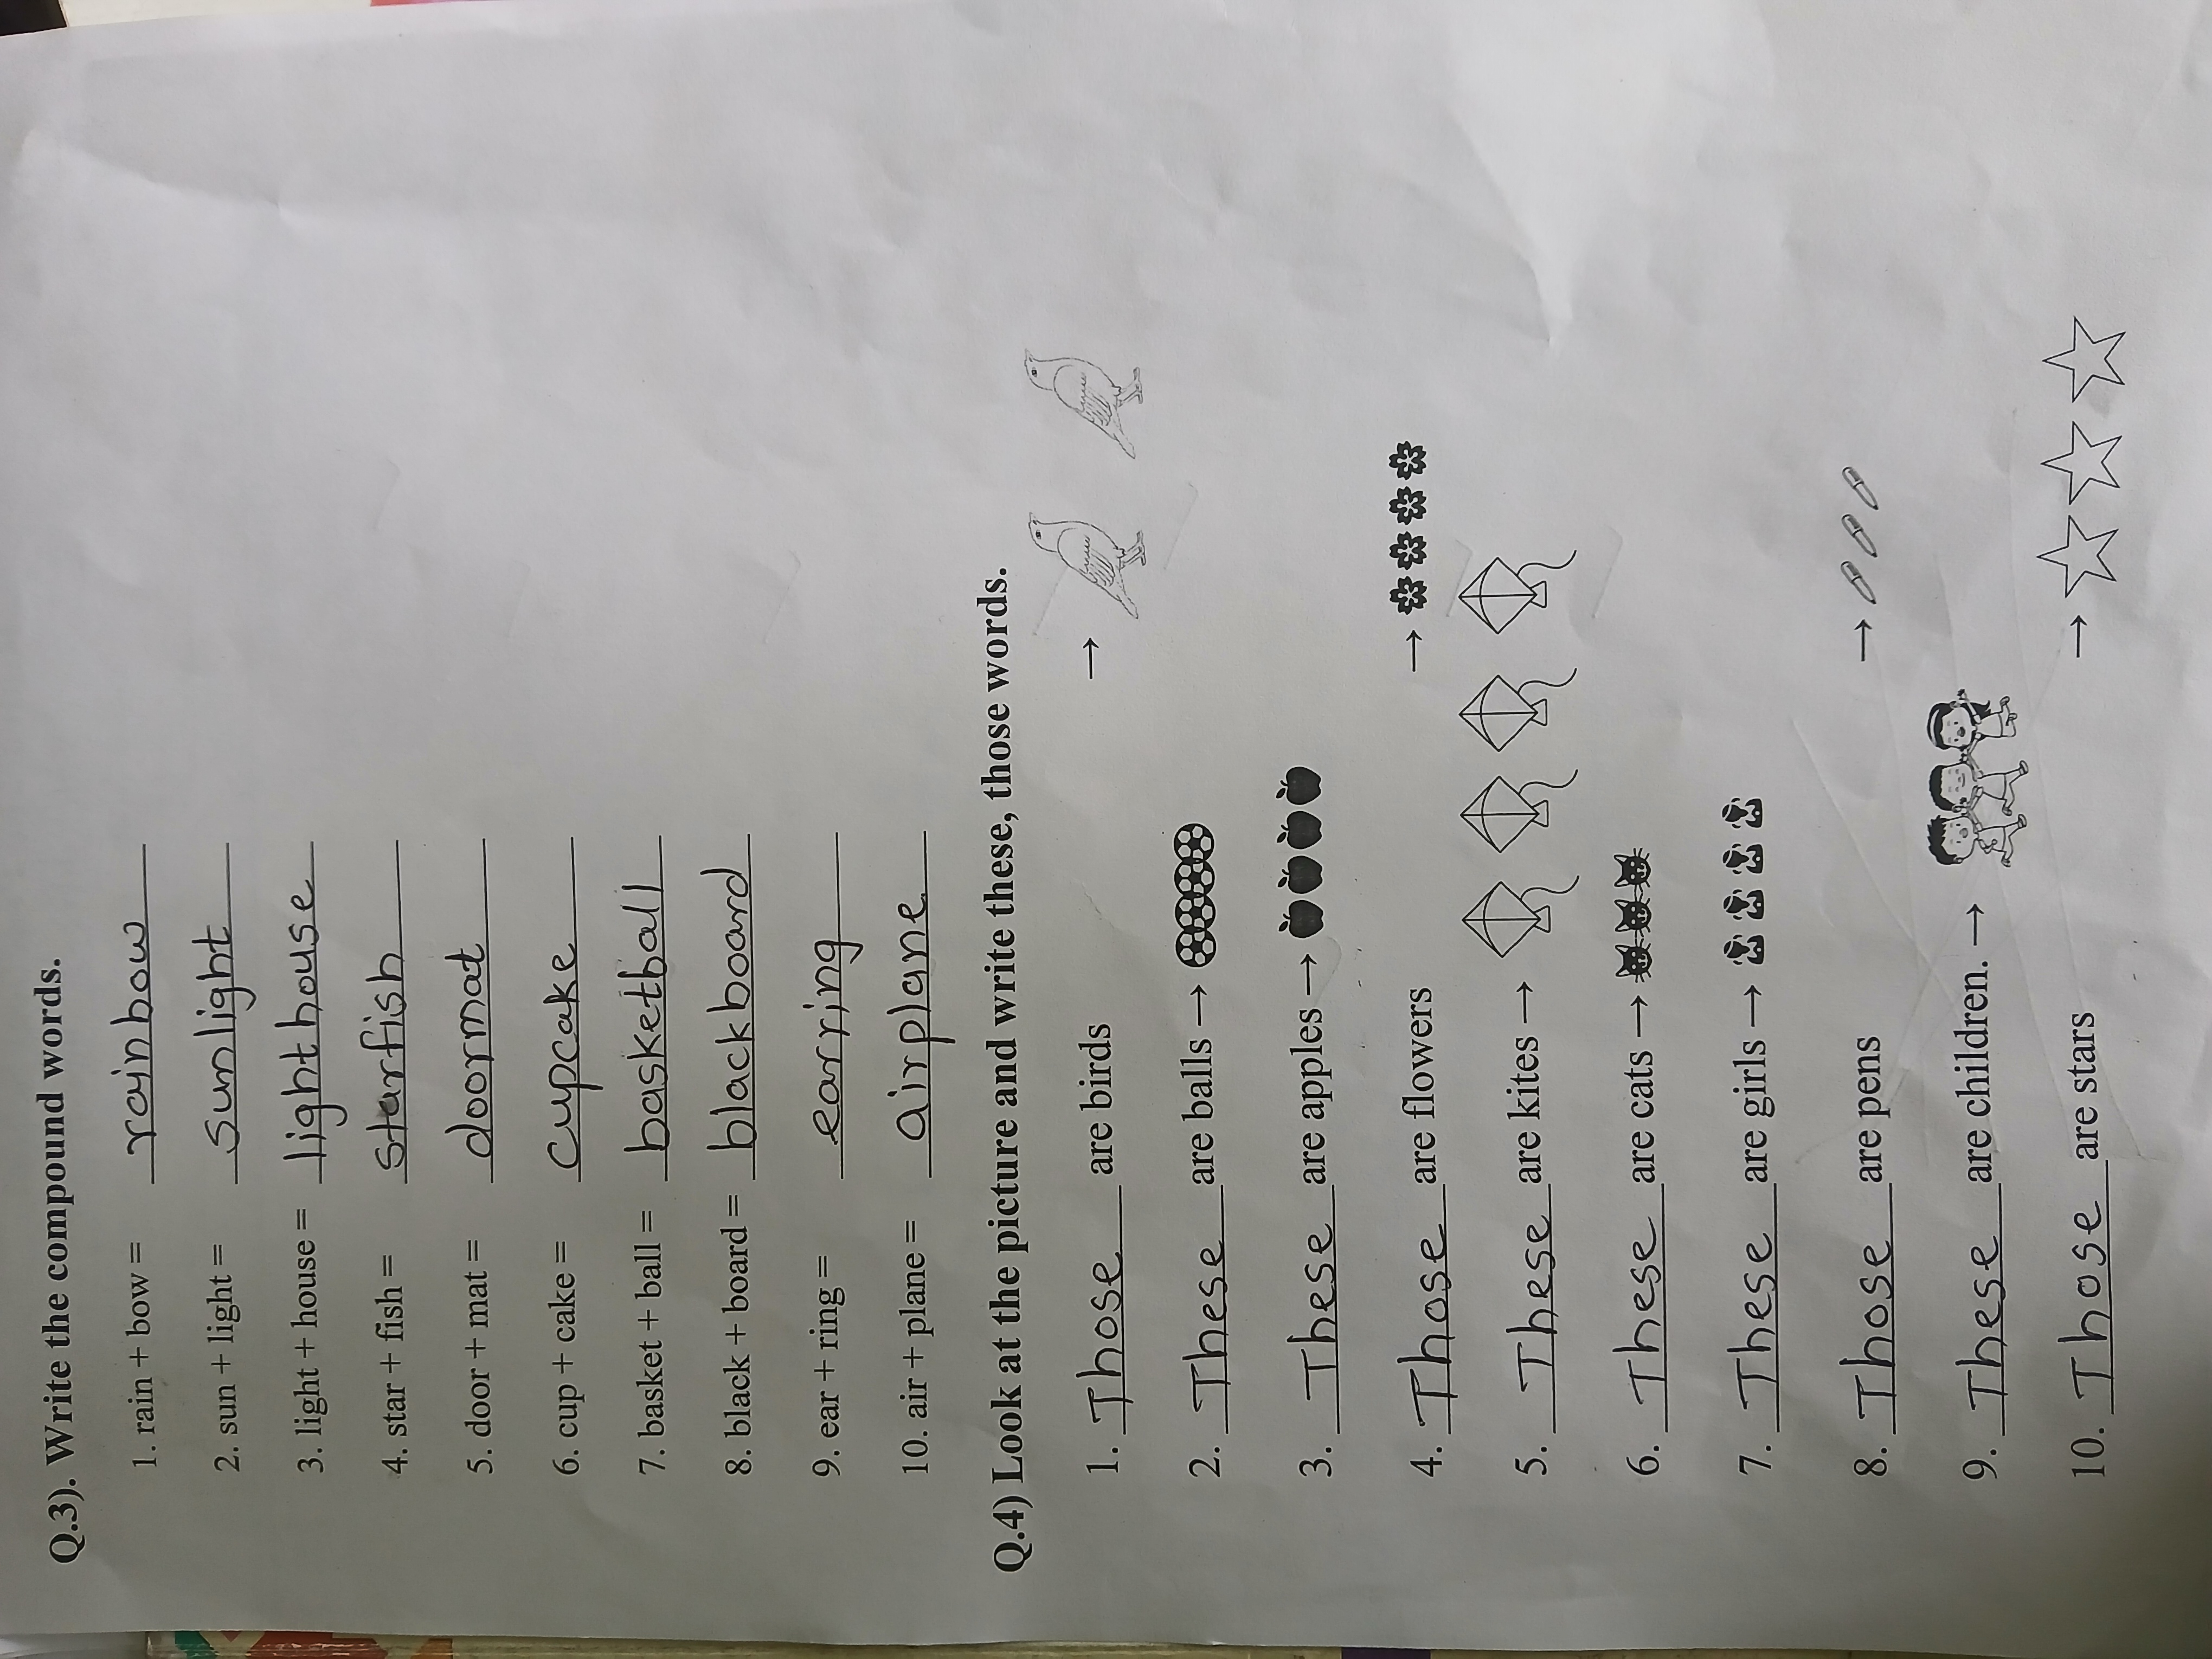 Q.3). Write the compound words.
1. rain + bow = rainbow
2. sun + light = sunlight
3. light + house = lighthouse
4. star + fish = starfish
5. door + mat = doormat
6. cup + cake = cupcake
7. basket + ball = basketball
8. black + board = blackboard
9. ear + ring = earring
10. air + plane = airplane
Q.4) Look at the picture and write these, those words.
1. Those are birds →
2. These are balls →
3. These are apples →
4. Those are flowers →
5. These are kites →
6. These are cats →
7. These are girls →
8. Those are pens →
9. These are children. →
10. Those are stars →